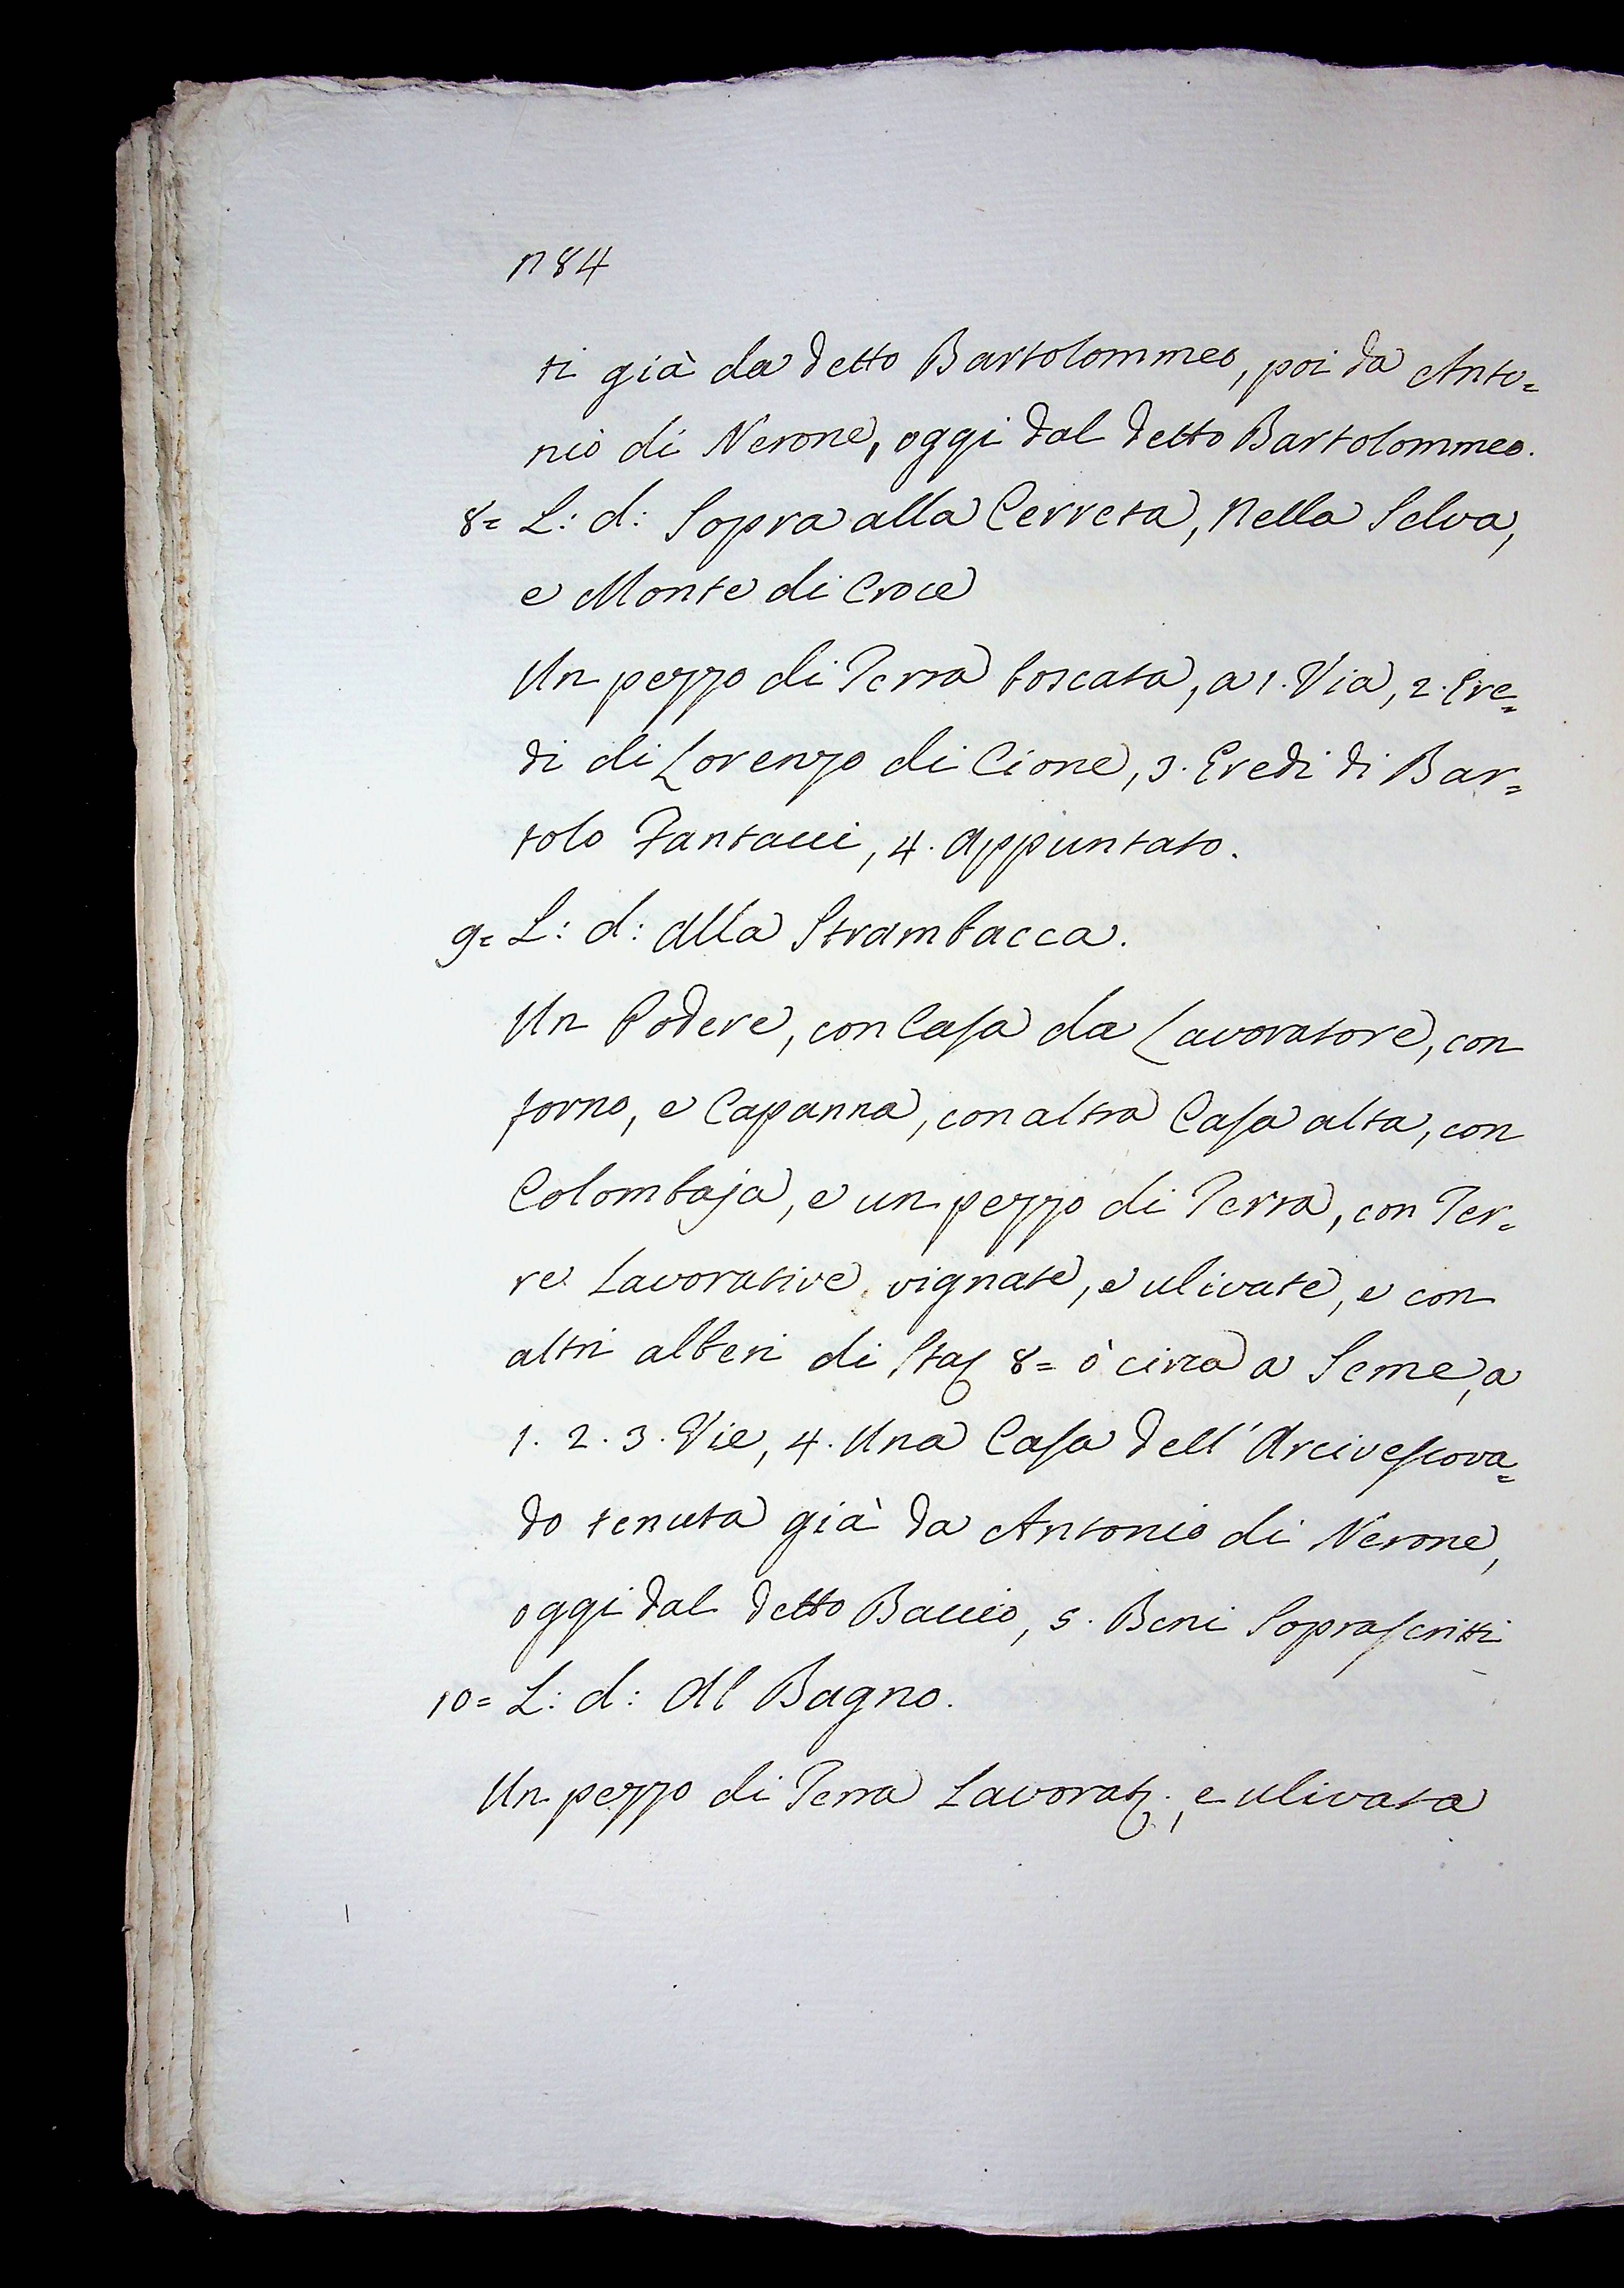 n 84
ti già da detto Bartolommeo, poi da Anto=
nio di Nerone, oggi dal detto Bartolommeo.
8= L: d: Sopra alla Cerreta, nella Selva,
e Monte di Croce
Un pezzo di Terra boscata, a 1. Via, 2. Ere=
di di Lorenzo di Cione, 3. Eredi di Bar=
tolo Fantacci, 4. Appuntato.
9= L: d: Alla Strambacca.
Un Podere, con Casa da Lavoratore, con
forno, e Capanna, con altra Casa alta, con
Colombaja, e un pezzo di Terra, con Ter=
re Lavorative, vignate, e ulivate, e con
altri alberi di Sta 8= ò circa a Seme, a
1. 2. 3. Vie, 4. Una Casa dell'Arcivescova=
do tenuta già da Antonio di Nerone,
oggi dal detto Baccio, 5. Beni Soprascritti
10= L: d: Al Bagno.
Un pezzo di Terra Lavorat., e ulivata